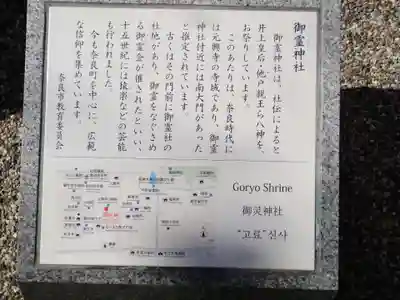 御霊神社
御霊神社は、社伝によると
井上皇后・他戸親王ら八神を、
お祭りしています。
このあたりは、奈良時代に
は元興寺の寺域であり、御霊
神社付近には南大門があった
と推定されています。
古くはその門前に御霊社の
社地があり、御霊をなぐさめ
る御霊会が催されたといい、
十五世紀には猿楽などの芸能
も行われました。
今も奈良町を中心に、広範
な信仰を集めています。
奈良市教育委員会
Goryo Shrine
御灵神社
“고료”신사